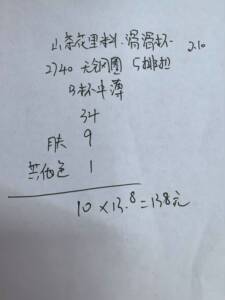 山茶花里料.滑滑杯 2.10
2740 无钢圈 5排扣
B杯半薄
34
肤 9
其他色 1
10×13.8=138元